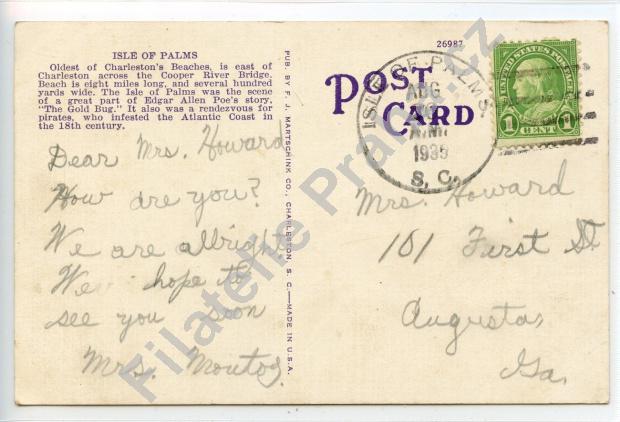 ISLE OF PALMS
Oldest of Charleston's Beaches, is east of
Charleston across the Cooper River Bridge.
Beach is eight miles long, and several hundred
yards wide. The Isle of Palms was the scene
of a great part of Edgar Allen Poe's story,
"The Gold Bug." It also was a rendezvous for
pirates, who infested the Atlantic Coast in
the 18th century.
Dear Mrs. Howard
How are you?
We are allright,
We hope to
see you soon
Mrs.
PUB. BY F. J. MARTSCHINK CO., CHARLESTON, S. C.—MADE IN U.S.A.
26987
POST
CARD
ISLE OF PALMS
AUG
1935
S. C.
UNITED STATES POSTAGE
1 CENT 1
Mrs. Howard
101 First St
Augusta,
Ga.
Filatelie Praha.cz